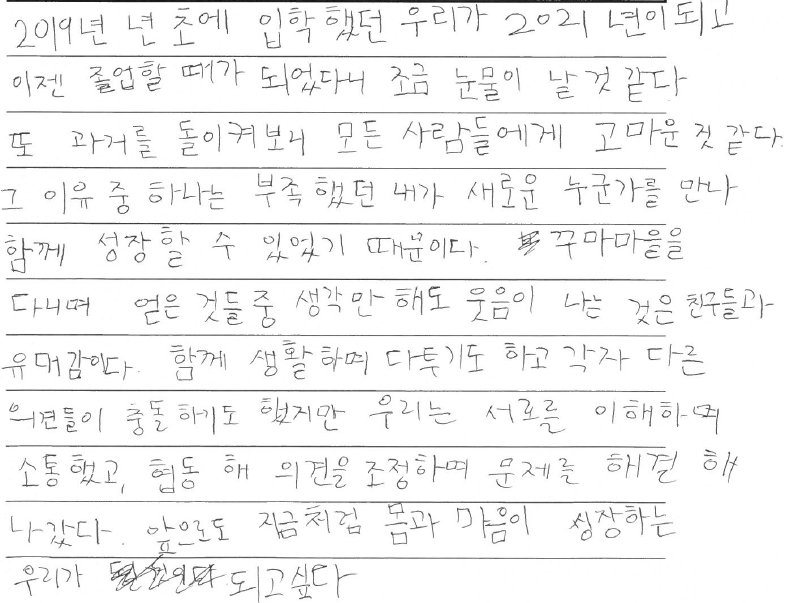 2019년 년 초에 입학했던 우리가 2021 년이 되고
이젠 졸업할 때가 되었다니 조금 눈물이 날 것 같다
또 과거를 돌이켜보니 모든 사람들에게 고마운 것 같다.
그 이유 중 하나는 부족했던 내가 새로운 누군가를 만나
함께 성장할 수 있었기 때문이다. 꾸마마을을
다니며 얻은 것들 중 생각만 해도 웃음이 나는 것은 친구들과
유대감이다. 함께 생활하며 다투기도 하고 각자 다른
의견들이 충돌하기도 했지만 우리는 서로를 이해하며
소통했고, 협동 해 의견을 조정하며 문제를 해결 해
나갔다. 앞으로도 지금처럼 몸과 마음이 성장하는
우리가 되고싶다